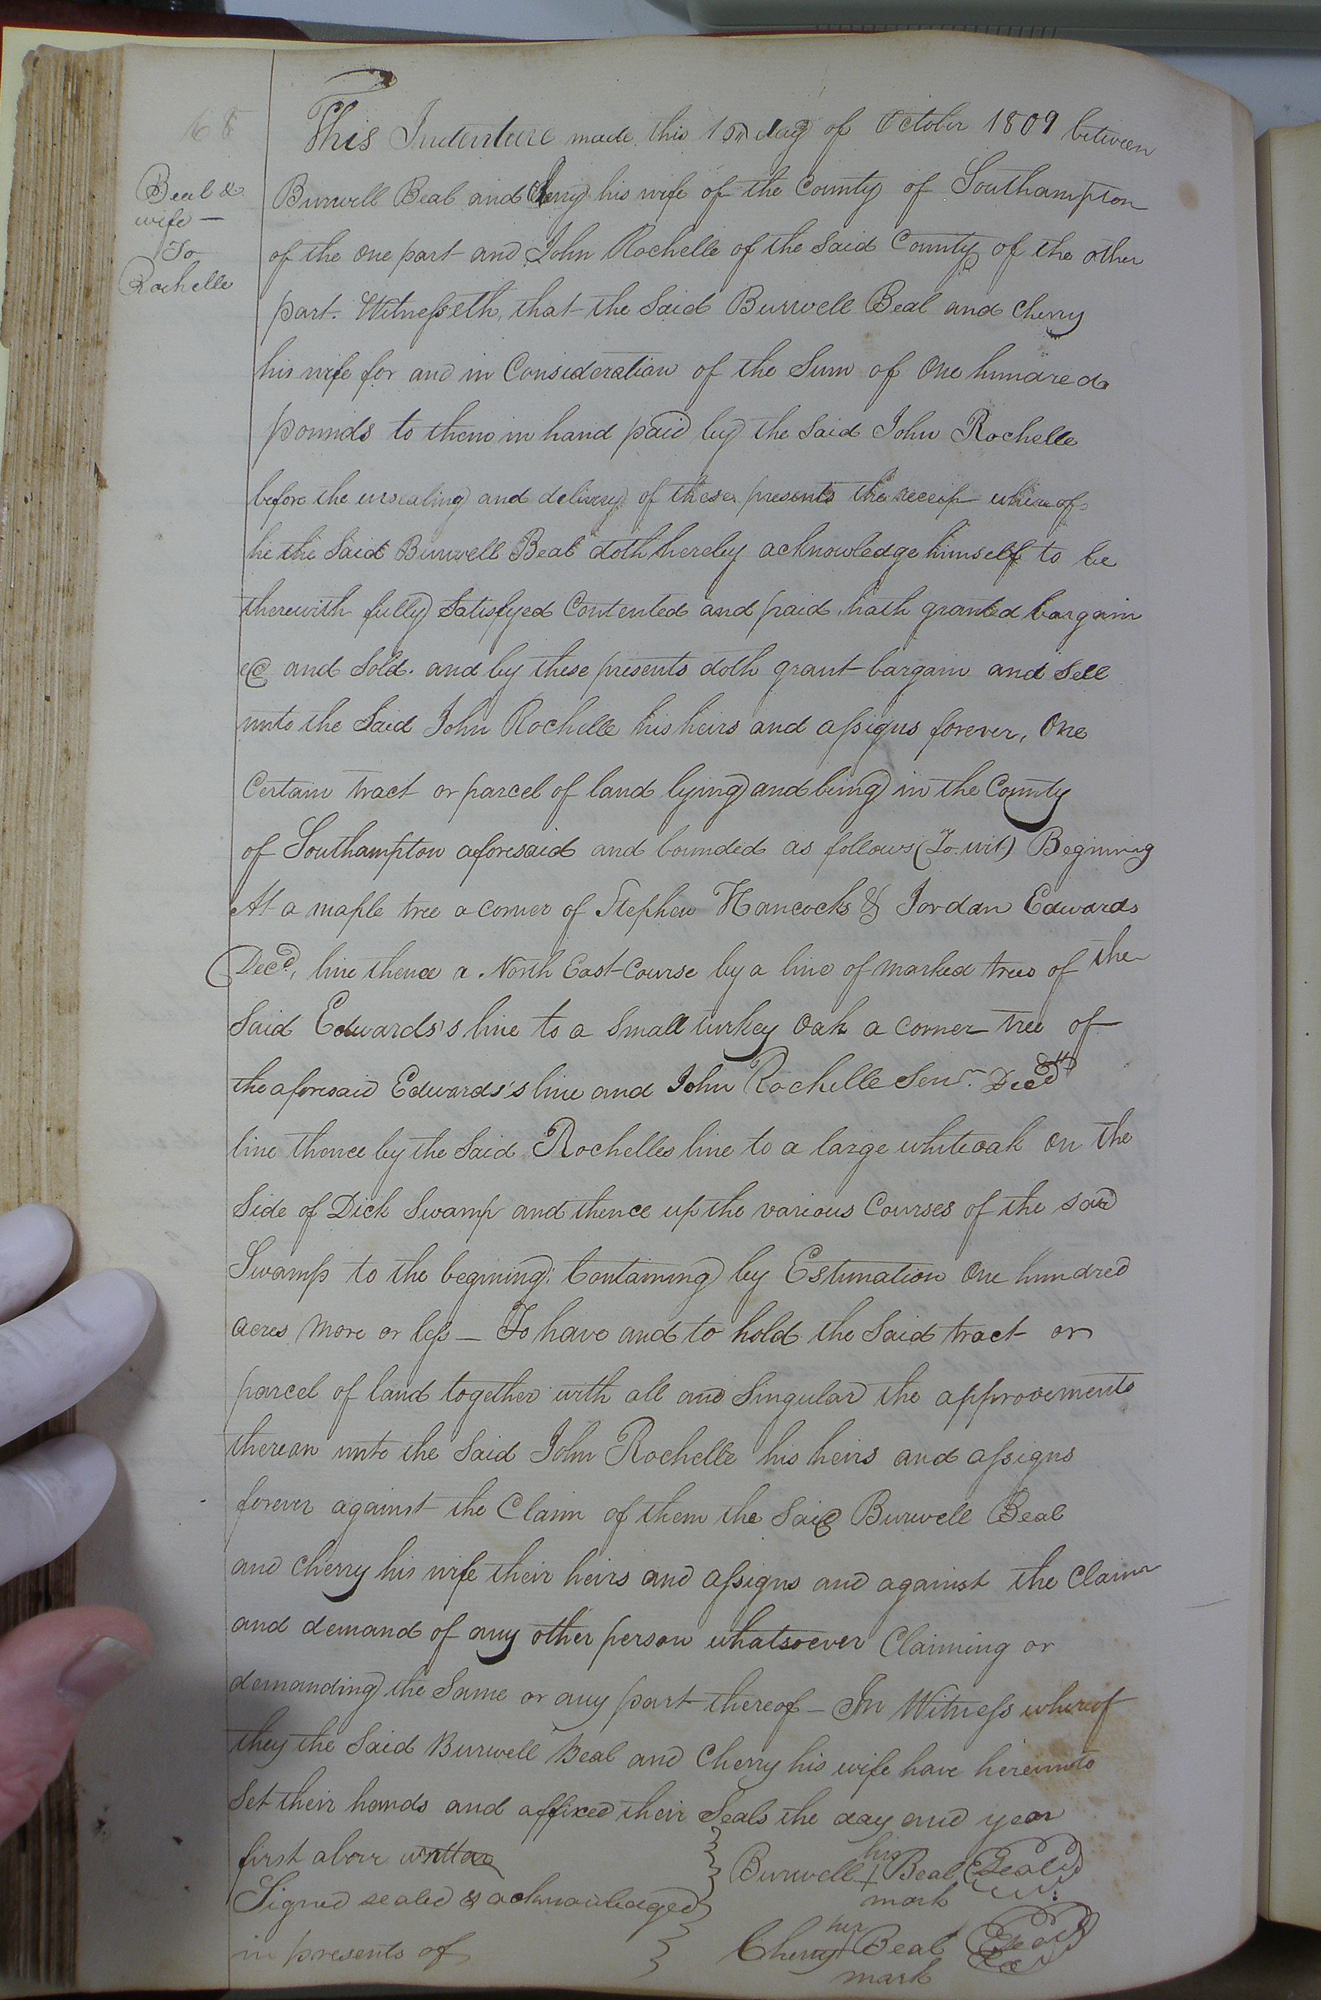 68
Beal &
wife —
To
Rochelle
This Indenture made this day of October 1809 between
Burwell Beal and Cherry his wife of the County of Southampton
of the one part and John Rochelle of the Said County of the other
part. Witnesseth, that the Said Burwell Beal and Cherry
his wife for and in Consideration of the Sum of One hundred
pounds to them in hand paid by the Said John Rochelle
before the ensealing and delivery of these presents the receip whereof
he the Said Burwell Beal doth hereby acknowledge himself to be
therewith fully Satisfyed Contented and paid, hath granted bargain
ed and Sold. and by these presents doth grant bargain and Sell
unto the Said John Rochelle his heirs and assigns forever, One
Certain tract or parcel of land lying and being in the County
of Southampton aforesaid and bounded as follows (To wit) Begining
At a maple tree a corner of Stephen Hancocks & Jordan Edwards
Decd, line thence a North East Course by a line of marked trees of the
Said Edwards's line to a Small turkey Oak a corner tree of
the aforesaid Edwards's line and John Rochelle Senr. Decd
line thence by the Said Rochelles line to a large white oak on the
Side of Dick Swamp and thence up the various Courses of the said
Swamp to the begining: Containing by Estimation One hundred
acres More or less — To have and to hold the Said tract or
parcel of land together with all and Singular the approvements
thereon unto the Said John Rochelle his heirs and assigns
forever against the Claim of them the Said Burwell Beal
and Cherry his wife their heirs and assigns and against the Claim
and demand of any other person whatsoever Claiming or
demanding the Same or any part thereof — In Witness whereof
they the Said Burwell Beal and Cherry his wife have hereunto
Set their hands and affixed their Seals the day and year
first above written
his
Burwell + Beal (Seal)
mark
Signed sealed & acknowledged
in presents of
her
Cherry + Beal (Seal)
mark